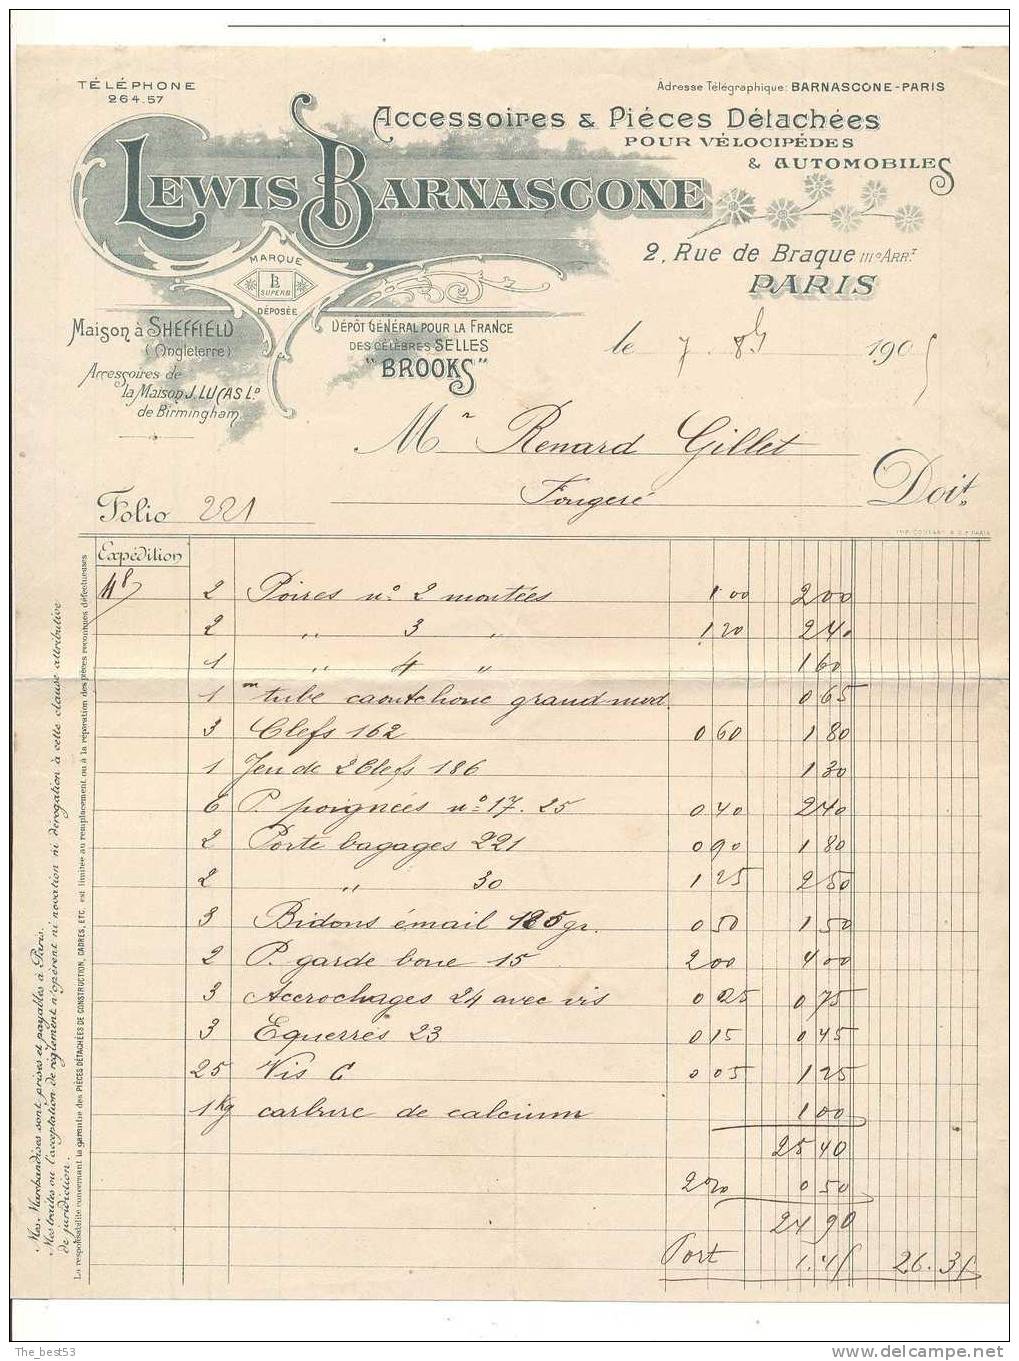 TÉLÉPHONE
264.57
Adresse Télégraphique: BARNASCONE-PARIS
Accessoires & Piéces Détachées
POUR VÉLOCIPÈDES
& AUTOMOBILES
LEWIS BARNASCONE
2, Rue de Braque IIIe ARRT
PARIS
MARQUE
LB
SUPERB
DÉPOSÉE
Maison à SHEFFIELD
(Angleterre)
Accessoires de
la Maison J. LUCAS LD
de Birmingham
DÉPÔT GÉNÉRAL POUR LA FRANCE
DES CÉLÈBRES SELLES
"BROOKS"
le 7. 1905
Mr Renard Gillet
Fougeré
Doit.
Folio 221
Expédition
2 Poires no 2 montées 1 00 2 00
2 " 3 " 1 20 2 40
1 " 4 " 1 60
1 m tube caoutchouc grand mod. 0 65
3 Clefs 162 0 60 1 80
1 Jeu de 2 Clefs 186 1 30
6 P. poignées no 17. 25 0 40 2 40
2 Porte bagages 221 0 90 1 80
2 " 30 1 25 2 50
3 Bidons émail 185 gr. 0 50 1 50
2 P. garde boue 15 2 00 4 00
3 Accrochages 24 avec vis 0 25 0 75
3 Equerres 23 0 15 0 45
25 Vis C 0 05 1 25
1 Kg carbure de calcium 1 00
25 40
2 % 0 50
24 90
Port 1.45 26.35
Mes Marchandises sont prises et payables à Paris.
Mes traites ou l'acceptation de règlement n'opèrent ni novation ni dérogation à cette clause attributive
de juridiction.
La responsabilité concernant la garantie des PIÈCES DÉTACHÉES DE CONSTRUCTION, CADRES, ETC. est limitée au remplacement ou à la réparation des pièces reconnues défectueuses
The_best53
delcampe.net